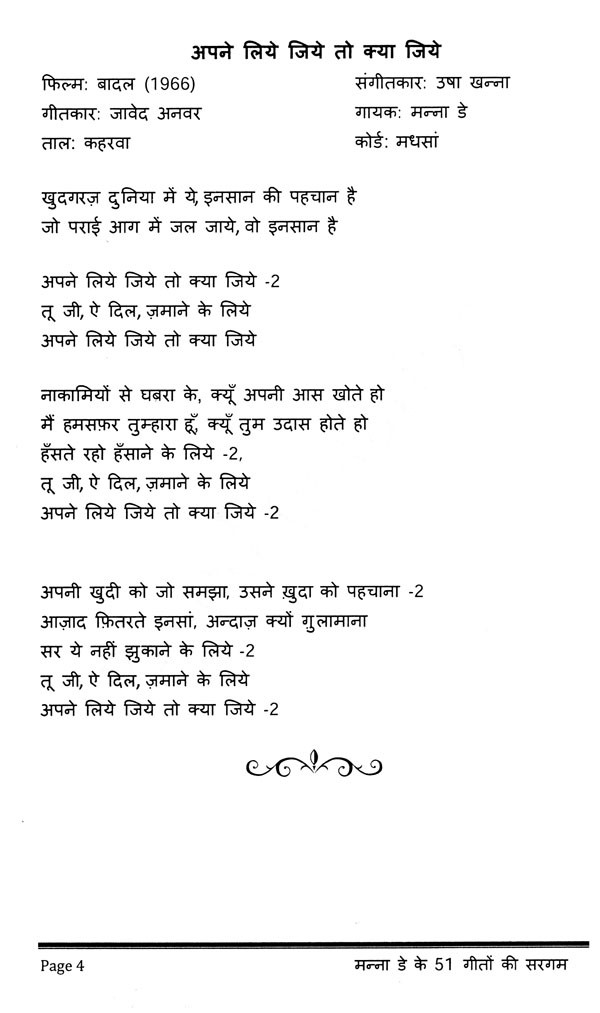 अपने लिये जिये तो क्या जिये
फिल्म: बादल (1966) संगीतकार: उषा खन्ना
गीतकार: जावेद अनवर गायक: मन्ना डे
ताल: कहरवा कोर्ड: मधसां
खुदगरज़ दुनिया में ये, इनसान की पहचान है
जो पराई आग में जल जाये, वो इनसान है
अपने लिये जिये तो क्या जिये -2
तू जी, ऐ दिल, ज़माने के लिये
अपने लिये जिये तो क्या जिये
नाकामियों से घबरा के, क्यूँ अपनी आस खोते हो
मैं हमसफ़र तुम्हारा हूँ, क्यूँ तुम उदास होते हो
हँसते रहो हँसाने के लिये -2,
तू जी, ऐ दिल, ज़माने के लिये
अपने लिये जिये तो क्या जिये -2
अपनी खुदी को जो समझा, उसने ख़ुदा को पहचाना -2
आज़ाद फ़ितरते इनसां, अन्दाज़ क्यों ग़ुलामाना
सर ये नहीं झुकाने के लिये -2
तू जी, ऐ दिल, ज़माने के लिये
अपने लिये जिये तो क्या जिये -2
Page 4 मन्ना डे के 51 गीतों की सरगम